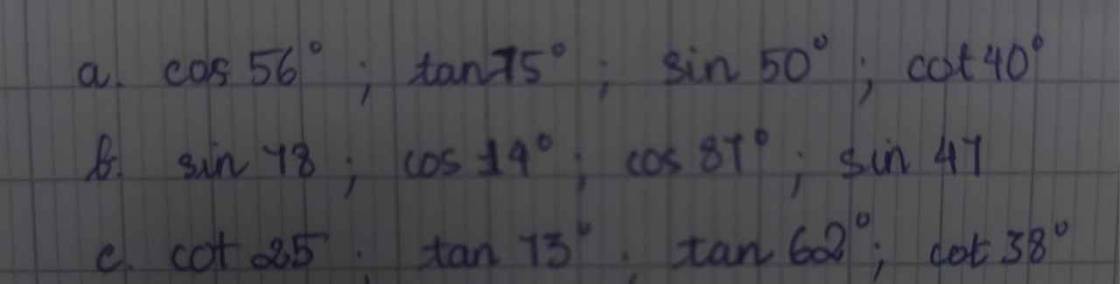 a. cos 56° ; tan 75° ; sin 50° ; cot 40°
b. sin 78 ; cos 14° ; cos 87° ; sin 47
c. cot 25 ; tan 73° ; tan 62° ; cot 38°